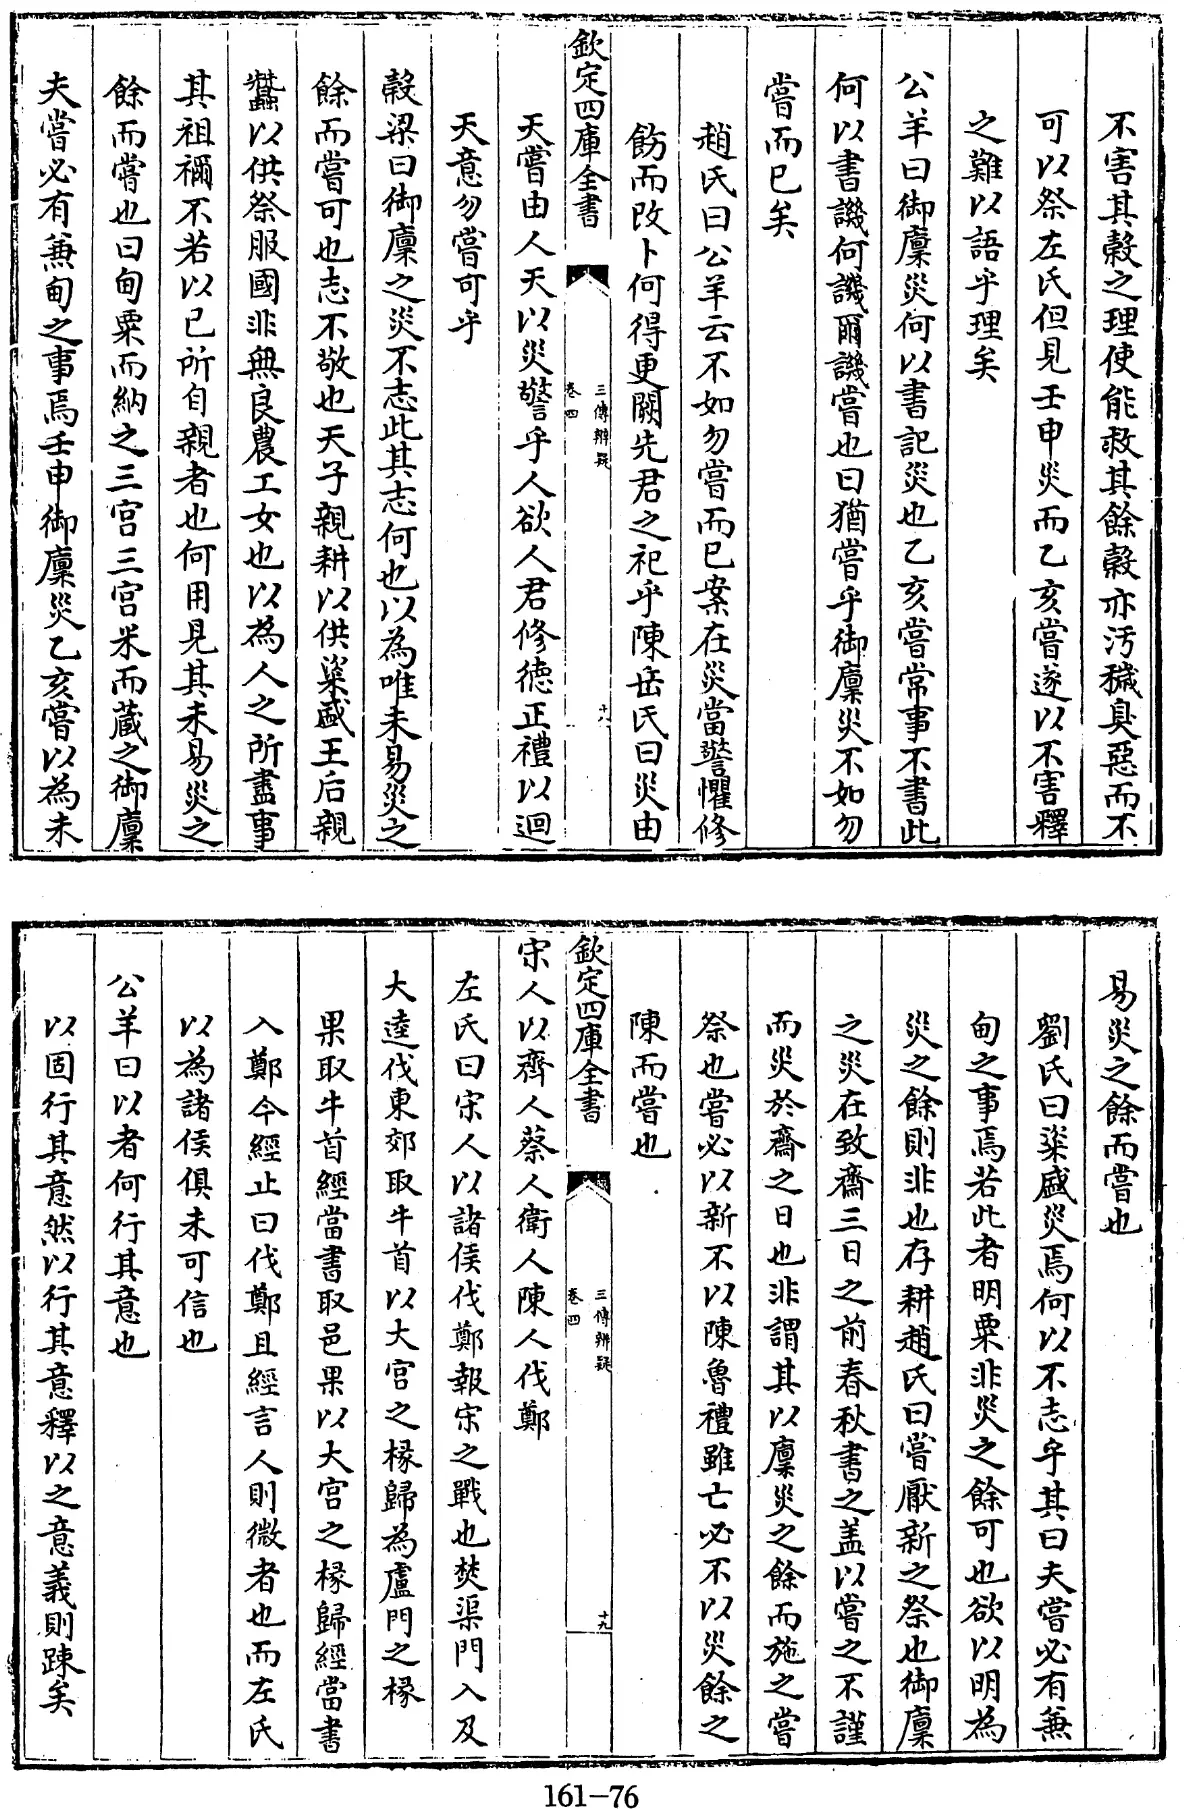 不害其穀之理使能救其餘穀亦汚穢臭惡而不
可以祭左氏但見壬申災而乙亥嘗遂以不害釋
之難以語乎理矣
公羊曰御廩災何以書記災也乙亥嘗常事不書此
何以書譏何譏爾譏嘗也曰猶嘗乎御廩災不如勿
嘗而已矣
趙氏曰公羊云不如勿嘗而已案在災當警懼修
飭而改卜何得更闕先君之祀乎陳岳氏曰災由
天嘗由人天以災警乎人欲人君修德正禮以迴
欽定四庫全書
三傳辨疑
卷四
十八
天意勿嘗可乎
穀梁曰御廩之災不志此其志何也以為唯未易災之
餘而嘗可也志不敬也天子親耕以供粢盛王后親
蠶以供祭服國非無良農工女也以為人之所盡事
其祖禰不若以已所自親者也何用見其未易災之
餘而嘗也曰甸粟而納之三宮三宮米而蔵之御廩
夫嘗必有兼甸之事焉壬申御廩災乙亥嘗以為未
易災之餘而嘗也
劉氏曰粢盛災焉何以不志乎其曰夫嘗必有兼
甸之事焉若此者明粟非災之餘可也欲以明為
災之餘則非也存耕趙氏曰嘗厭新之祭也御廩
之災在致齋三日之前春秋書之盖以嘗之不謹
而災於齋之日也非謂其以廩災之餘而施之嘗
祭也嘗必以新不以陳魯禮雖亡必不以災餘之
陳而嘗也
宋人以齊人蔡人衛人陳人伐鄭
欽定四庫全書
三傳辨疑
卷四
十九
左氏曰宋人以諸侯伐鄭報宋之戰也焚渠門入及
大逵伐東郊取牛首以大宮之椽歸為盧門之椽
果取牛首經當書取邑果以大宮之椽歸經當書
入鄭今經止曰伐鄭且經言人則微者也而左氏
以為諸侯俱未可信也
公羊曰以者何行其意也
以固行其意然以行其意釋以之意義則踈矣
161-76